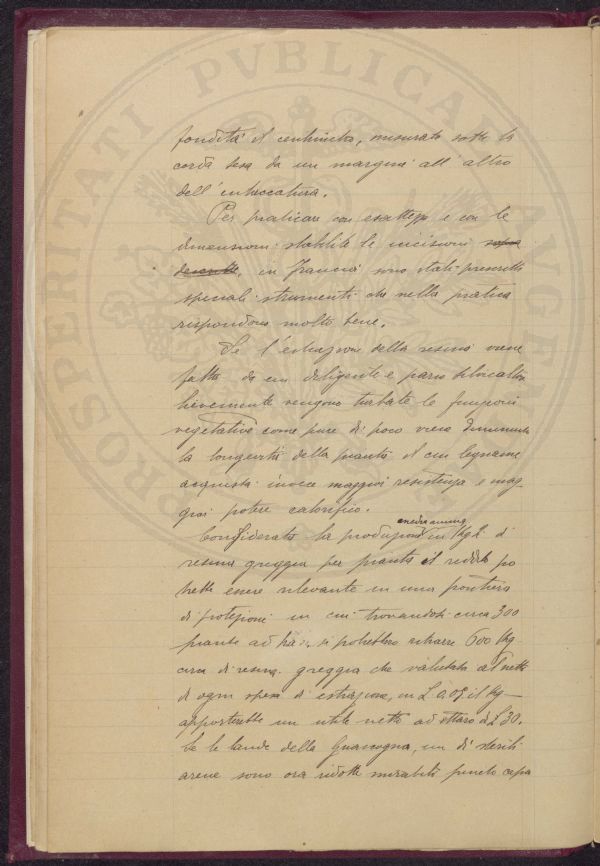 PROSPERITATI PVBLICAE AVGENDAE
fondità il centimetro, misurato sotto la
corda tesa da un margine all'altro
dell'intaccatura.
Per praticare con esattezza e con le
dimensioni stabilite le incisioni sopra
descritte, in Francia sono stati prescritti
speciali strumenti che nella pratica
rispondono molto bene.
Se l'estrazione della resina viene
fatta da un diligente e
lievemente vengono turbate le funzioni
vegetative come pure di poco viene diminuita
la longevità della pianta il cui legname
acquista invece maggior resistenza e mag
gior potere calorifico.
Considerata la produzione media annua in Kg 2 di
resina greggia per pianta il reddito po
trebbe essere rilevante in una frontiera
di protezione in cui trovandosi circa 300
piante ad ha. si potrebbero ritrarre 600 Kg
circa di resina greggia che valutata al netto
di ogni spesa di estrazione, in £ 0.05 il Kg
apporterebbe un utile netto ad ettaro di £ 30.
Se le lande della Guascogna, un dì sterili
arene sono ora ridotte mirabili pinete capa